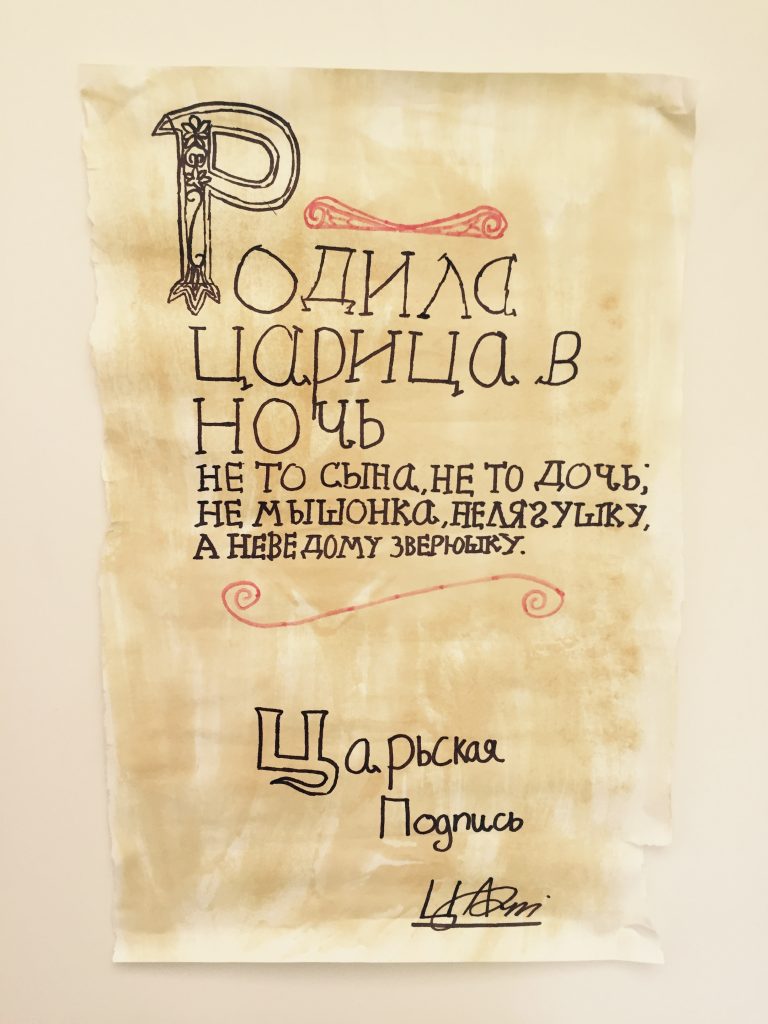 Родила
царица в
ночь
не то сына, не то дочь;
не мышонка, не лягушку,
а неведому зверюшку.
Царьская
Подпись